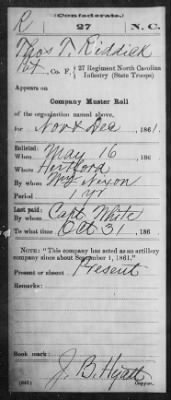 (Confederate.)
R 27 N.C.
Thos T. Riddick
Pvt, Co. F, 27 Regiment North Carolina
Infantry (State Troops)
Appears on
Company Muster Roll
of the organization named above,
for Nov & Dec, 1861.
Enlisted:
When May 16, 186
Where Hertford
By whom Wm Nixon
Period 1 yr
Last paid:
By whom Capt. White
To what time Oct 31, 186
NOTE: "This company has acted as an artillery
company since about September 1, 1861."
Present or absent Present
Remarks:
Book mark:
J. B. Hyatt
(641) Copyist.